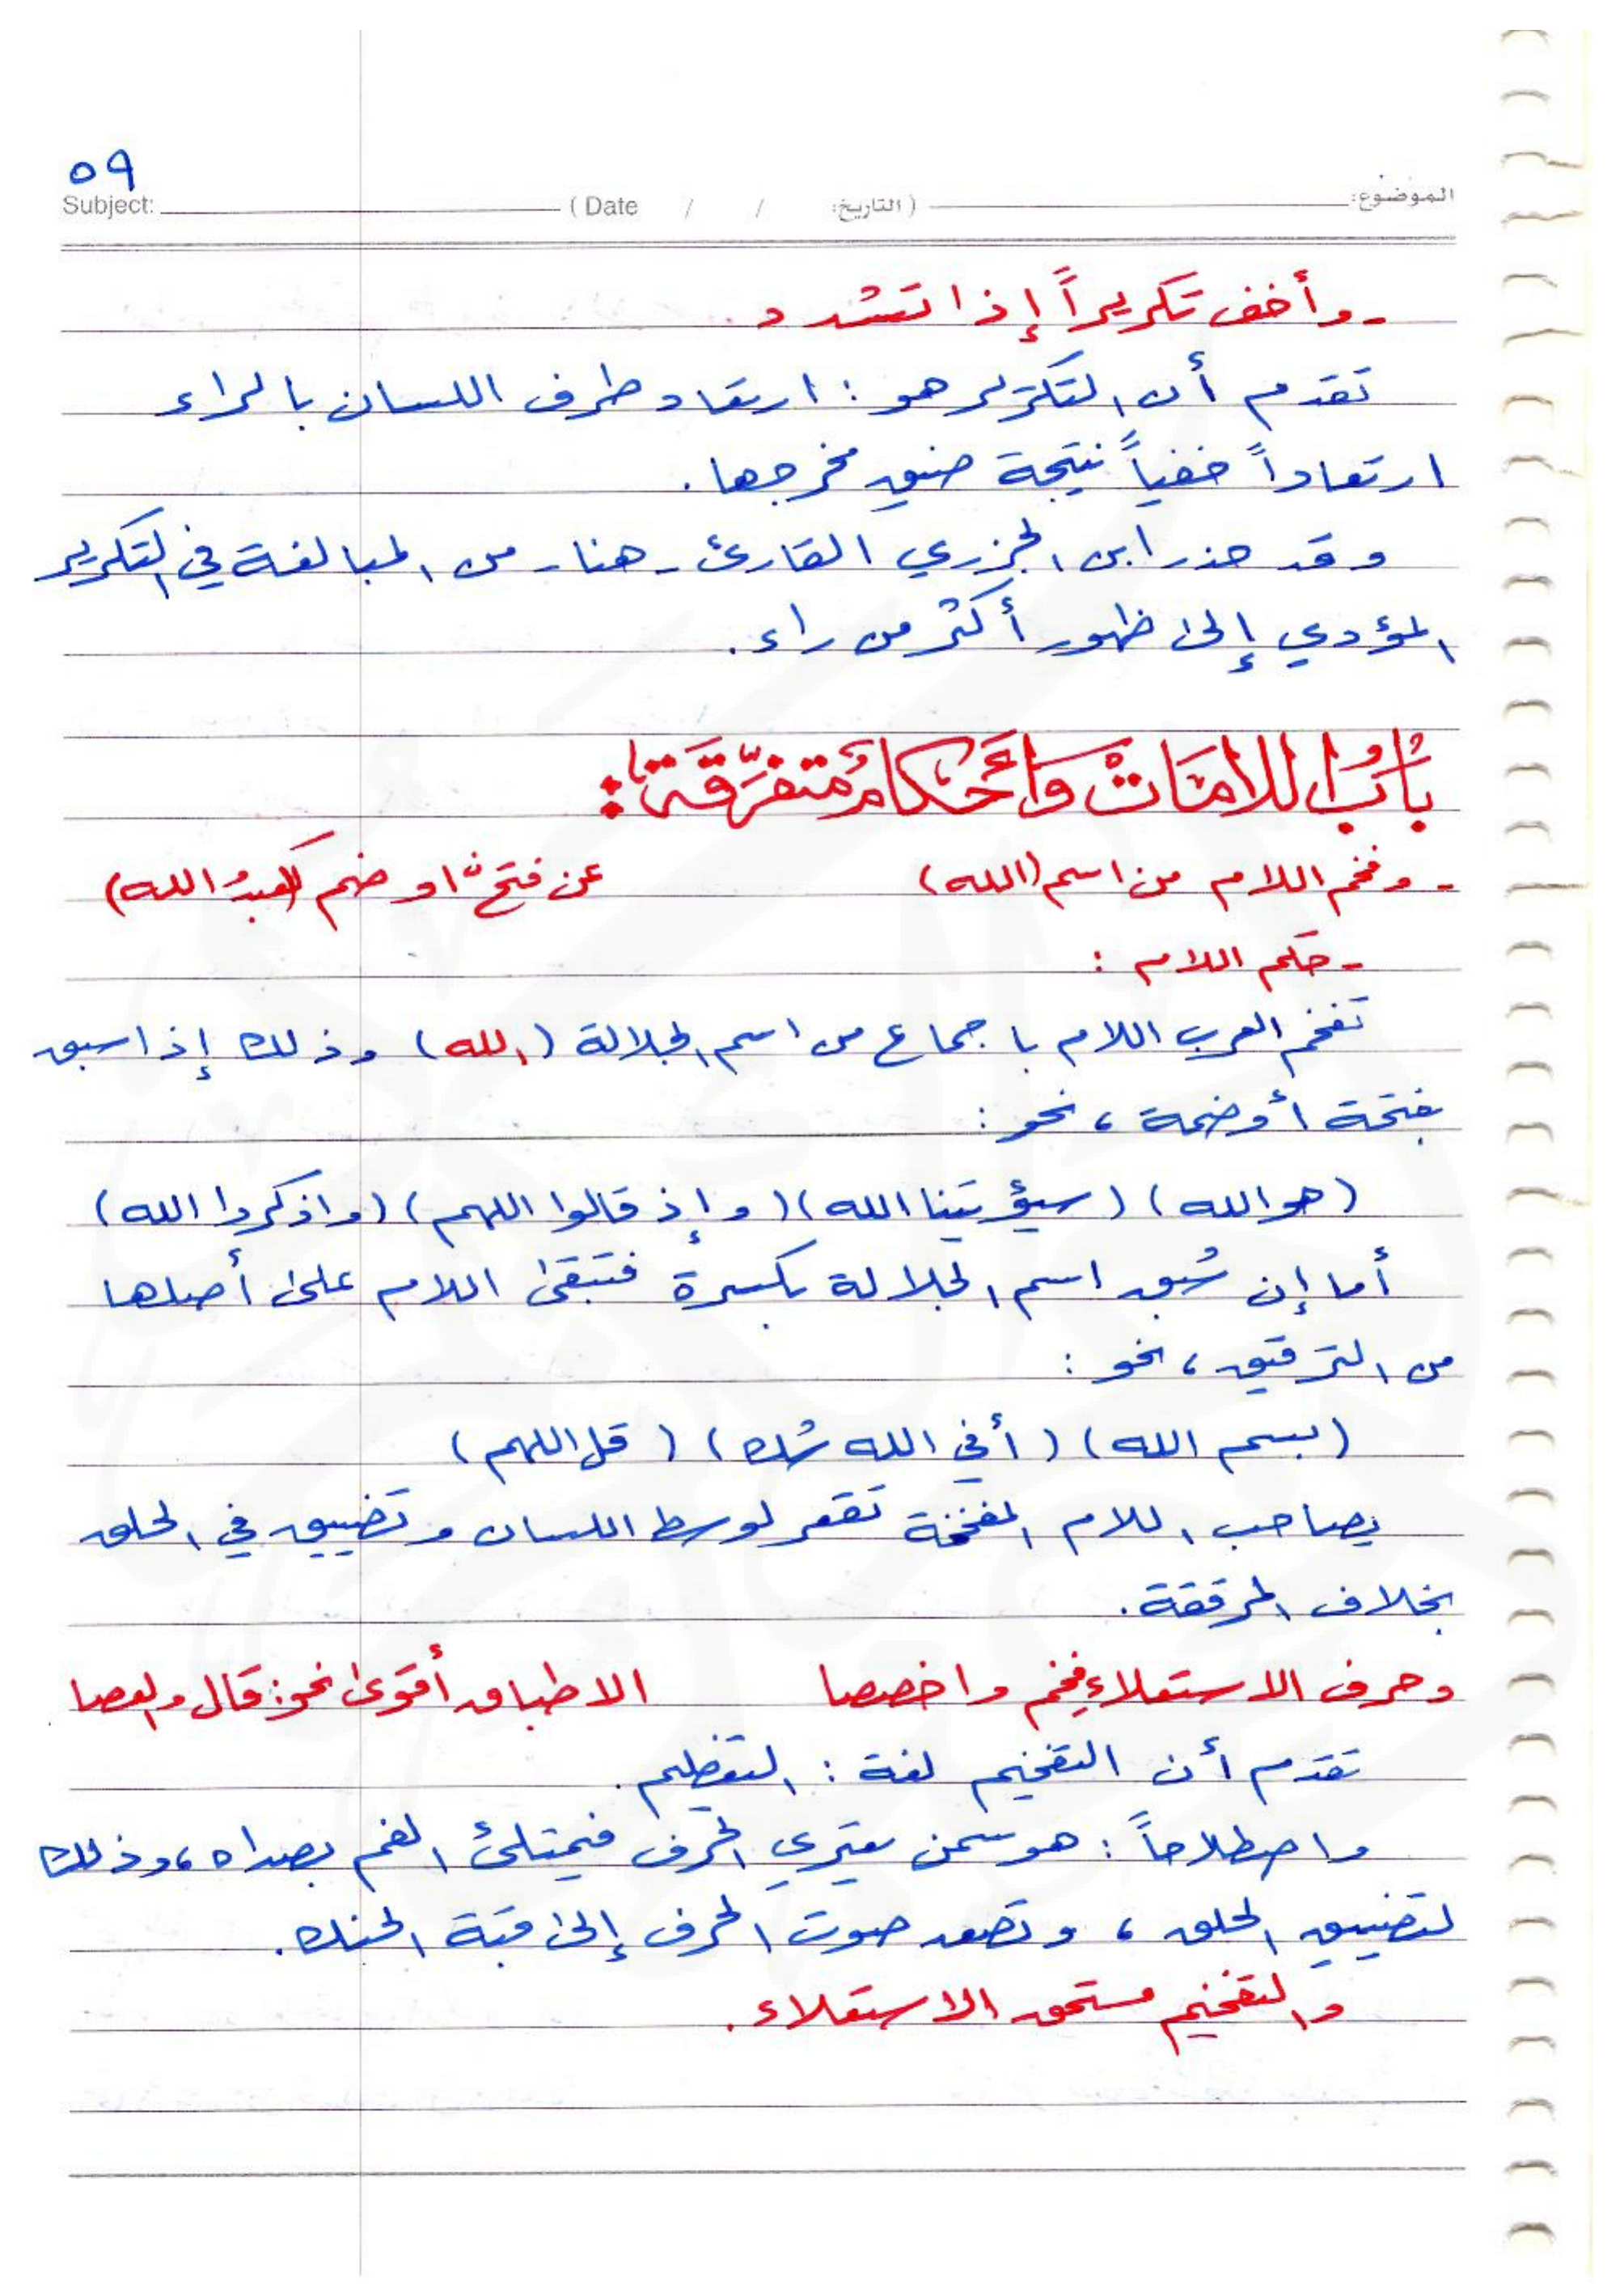 ٥٩
الموضوع: (التاريخ: / / Date ) Subject:
- وأخف تكريراً إذا تشدد.
تقدم أن التكرير هو : ارتعاد طرف اللسان بالراء
ارتعاداً خفياً نتيجة ضيق مخرجها.
وقد حذر ابن الجزري القارئ - هنا - من المبالغة في التكرير
المؤدي إلى ظهور أكثر من راء.
بَابُ اللامَاتْ وَأَحْكَامٌ مُتَفَرِّقَة:
- وفخم اللام من اسم (الله) عن فتح أو ضم كـ(عبدُ الله)
- حكم اللام :
تفخم العرب اللام باجماع من اسم الجلالة (الله) وذلك إذا سبق
بفتحة أو ضمة ، نحو :
(هو الله) (سيؤتينا الله) (وإذ قالوا اللهم) (واذكروا الله)
أما إن سُبق اسم الجلالة بكسرة فتبقى اللام على أصلها
من الترقيق ، نحو :
(بسم الله) (أفي الله شك) (قل اللهم)
يصاحب اللام المفخمة تقعر لوسط اللسان وتضييق في الحلق
بخلاف المرققة.
وحرف الاستعلاء فخم واخصصا الاطباق أقوى نحو: قال والعصا
تقدم أن التفخيم لغة : التعظيم.
واصطلاحاً : هو سمن يعتري الحرف فيمتلئ الفم بصداه ، وذلك
لتضييق الحلق ، وتصعد صوت الحرف إلى قبة الحنك.
والتفخيم مستحق الاستعلاء.